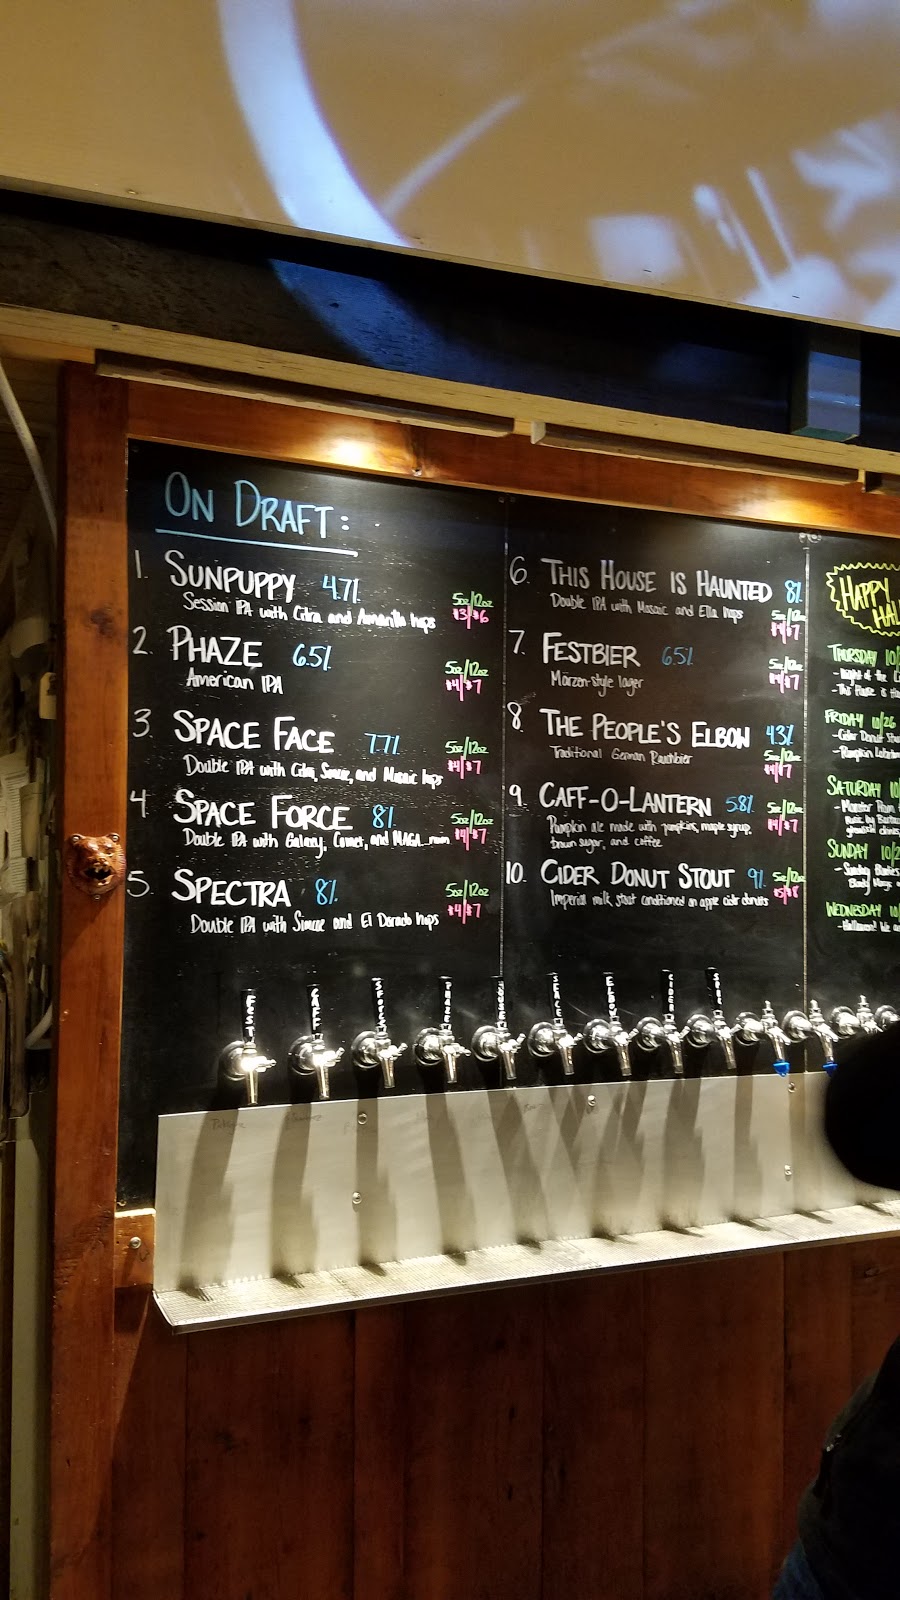 On Draft:
1. Sunpuppy 4.7%
Session IPA with Citra and Amarillo hops
5oz/12oz
$3/$6
2. Phaze 6.5%
American IPA
5oz/12oz
$4/$7
3. Space Face 7.7%
Double IPA with Citra, Simcoe, and Mosaic hops
5oz/12oz
$4/$7
4. Space Force 8%
Double IPA with Galaxy, Comet, and MAGA...
5oz/12oz
$4/$7
5. Spectra 8%
Double IPA with Simcoe and El Dorado hops
5oz/12oz
$4/$7
6. This House is Haunted 8%
Double IPA with Mosaic and Ella hops
5oz/12oz
$4/$7
7. Festbier 6.5%
Märzen-style lager
5oz/12oz
$4/$7
8. The People's Elbow 4.3%
Traditional German Rauchbier
5oz/12oz
$4/$7
9. Caff-O-Lantern 5.8%
Pumpkin ale made with pumpkins, maple syrup,
brown sugar, and coffee
5oz/12oz
$4/$7
10. Cider Donut Stout 9%
Imperial milk stout conditioned on apple cider donuts
5oz/12oz
$5/$8
Happy
Hal
Thursday 10/
-Night of the
-This House is Ha
Friday 10/26
-Cider Donut Stou
-Pumpkin
Saturday 10
-Monster
Music by
Sunday 10/2
-Sunday
Bloody
Wednesday 10/
-Halloween! We a
FEST
CAFF
SPACE
PHAZE
HOUSE
SPACE
ELBOW
CIDER
SPEC